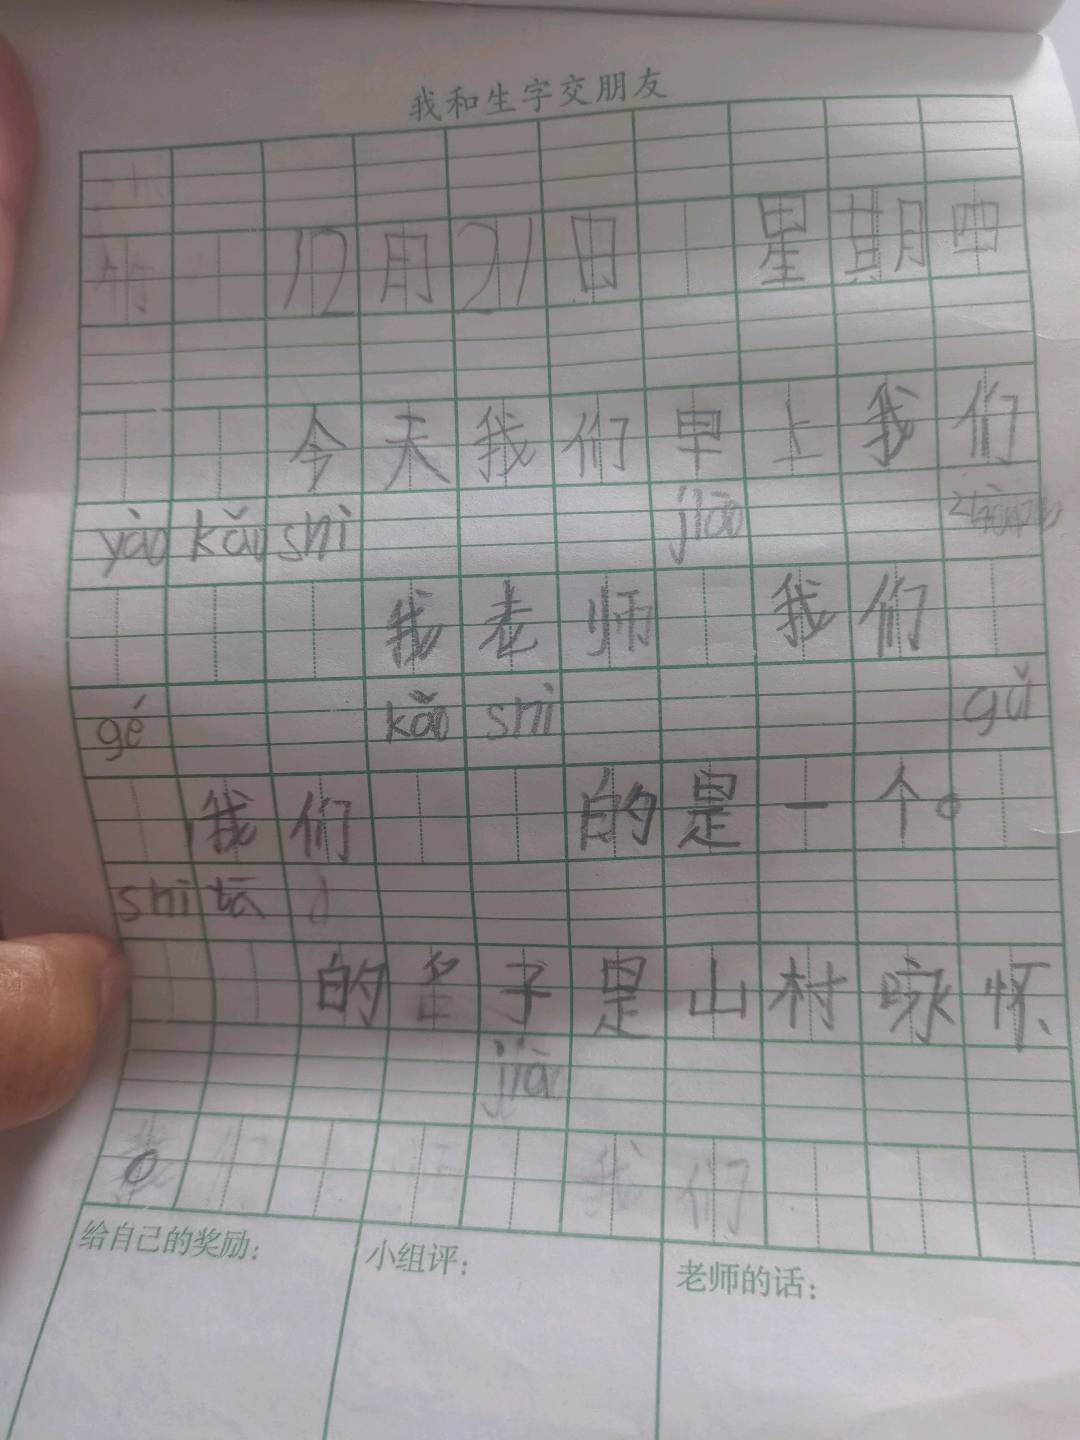 我和生字交朋友
12月21日 星期四
今天我们早上我们
yào kǎi shì jiāo
我老师 我们
gé kǎo shì gǔ
我们 的是一个。
shī tā
的名子是山村咏怀
jiā
。 我们
给自己的奖励：
小组评：
老师的话：